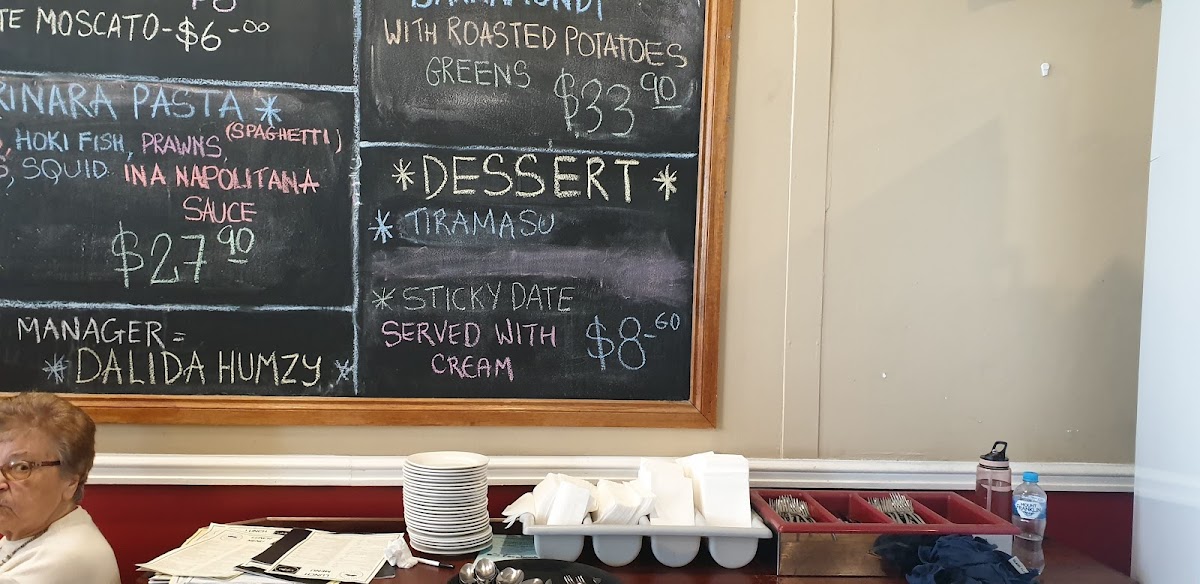 TE MOSCATO-$6-00
RINARA PASTA *
HOKI FISH, PRAWNS (SPAGHETTI)
SQUID IN A NAPOLITANA
SAUCE
$27 90
MANAGER =
* DALIDA HUMZY *
BARRAMUNDI
WITH ROASTED POTATOES
GREENS $33 90
* DESSERT *
* TIRAMASU
* STICKY DATE
SERVED WITH $8-60
CREAM
MOUNT
FRANKLIN
LUNCH
MENU